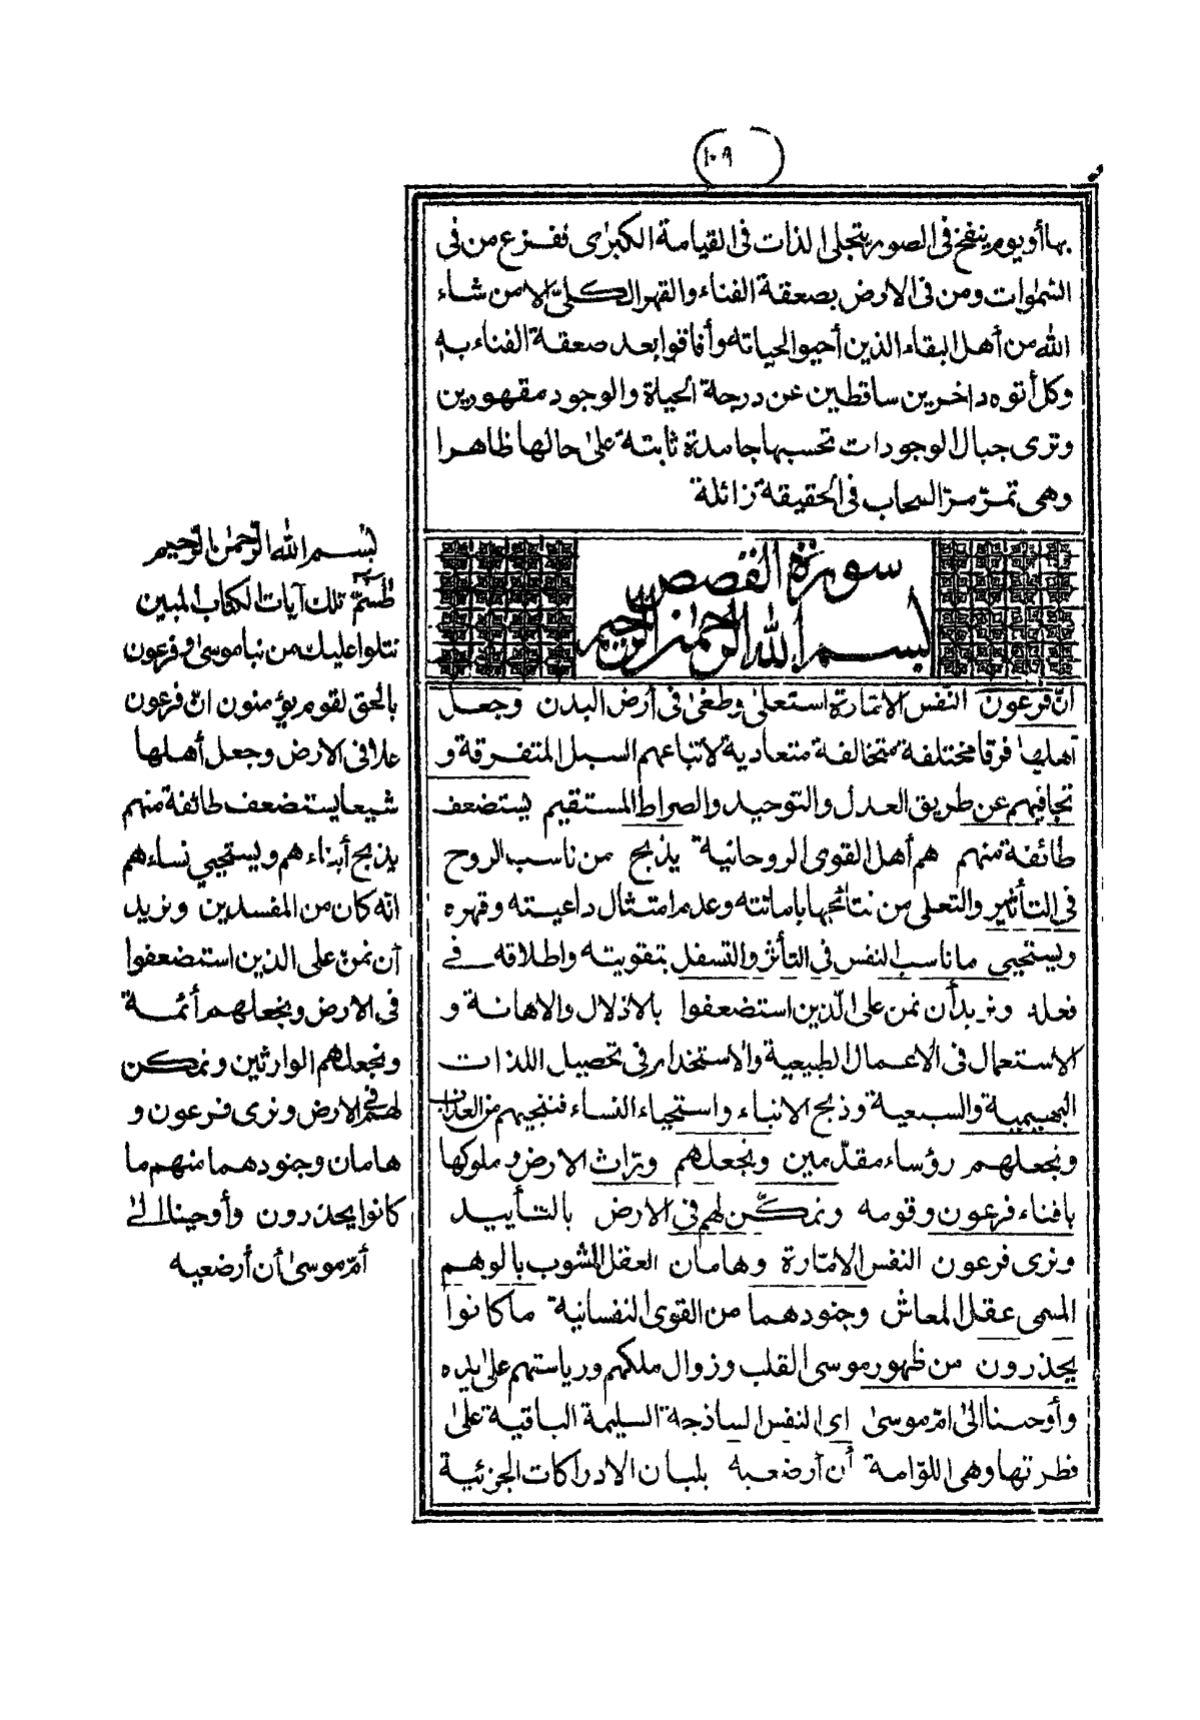 ١٠٩
بها أو يوم ينفخ في الصور بتجلي الذات في القيامة الكبرى ففزع من في
السّمٰوات ومن في الارض بصعقة الفناء والقهر الكلّيّ الا من شاء
الله من أهل البقاء الذين أحيوا الحياته وأفاقوا بعد صعقة الفناء به
وكل أتوه داخرين ساقطين عن درجة الحياة والوجود مقهورين
وترى جبال الوجودات تحسبها جامدة ثابتة على حالها ظاهرا
وهى تمرّ مرّ السحاب في الحقيقة زائلة
سورة القصص
بسم الله الرحمٰن الرحيم
انّ فرعون النّفس الامّارة استعلى وطغى في أرض البدن وجعل
أهلها فرقا مختلفة متخالفة متعادية لاتباعهم السبل المتفرقة و
تجافيهم عن طريق العدل والتوحيد والصراط المستقيم يستضعف
طائفة منهم هم أهل القوى الروحانية يذبح من ناسب الروح
في التأثير والتعلى من نتائجها باماتته وعدم امتثال داعيته وقهره
ويستحيى ما ناسب النفس في التأثر والتسفل بتقويته واطلاقه في
فعله ونريد أن نمن على الّذين استضعفوا بالاذلال والاهانة و
الاستعمال في الاعمال الطبيعية والاستخدام في تحصيل اللذات
البهيمية والسبعية وذبح الابناء واستحياء النساء فننجيهم من العذاب
ونجعلهم رؤساء مقدّمين ونجعلهم ورّاث الارض وملوكها
بافناء فرعون وقومه ونمكّن لهم في الارض بالتأييد
ونرى فرعون النفس الامّارة وهامان العقل المشوب بالوهم
المسمى عقل المعاش وجنودهما من القوى النفسانية ما كانوا
يحذرون من ظهور موسى القلب وزوال ملكهم ورياستهم على يده
وأوحينا الى امّ موسى اى النفس الساذجة السليمة الباقية على
فطرتها وهى اللوّامة أن أرضعيه بلبان الادراكات الجزئية
بسم الله الرّحمٰن الرّحيم
طٰسٓمّ تلك آيات الكتاب المبين
نتلوا عليك من نبا موسىٰ وفرعون
بالحق لقوم يؤمنون انّ فرعون
علا في الارض وجعل أهلها
شيعا يستضعف طائفة منهم
يذبح أبناءهم ويستحيي نساءهم
انّه كان من المفسدين ونريد
أن نمنّ على الذين استضعفوا
في الارض ونجعلهم أئمة
ونجعلهم الوارثين ونمكن
لهم في الارض ونرى فرعون و
هامان وجنودهما منهم ما
كانوا يحذرون وأوحينا الىٰ
أمّ موسىٰ أن أرضعيه